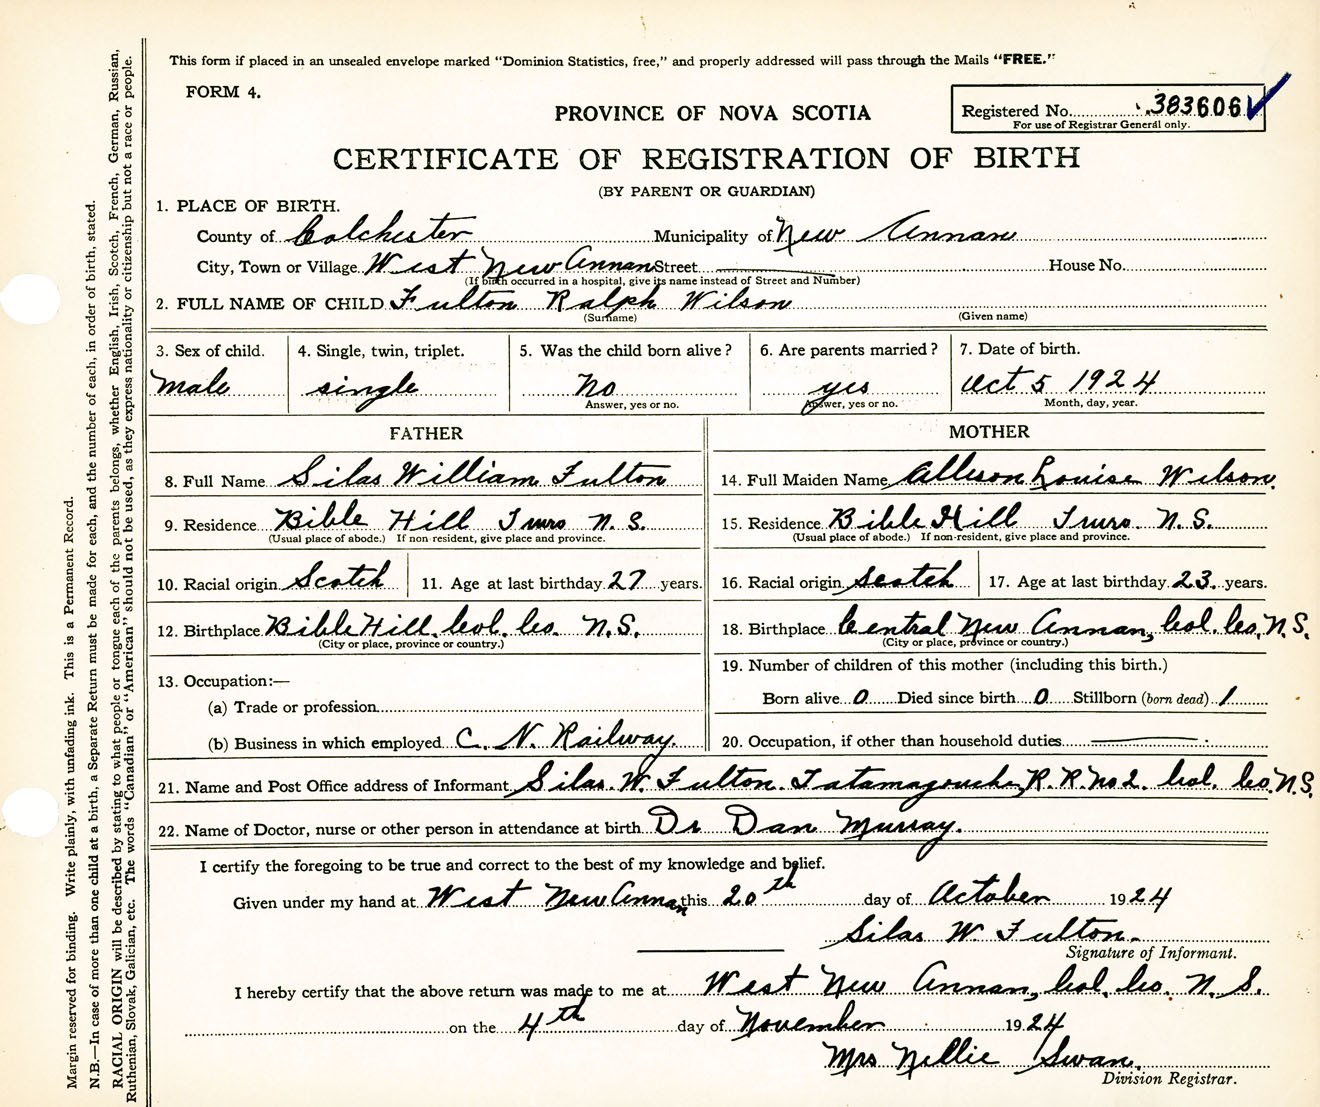 This form if placed in an unsealed envelope marked "Dominion Statistics, free," and properly addressed will pass through the Mails "FREE."
FORM 4.
PROVINCE OF NOVA SCOTIA
Registered No. 383606
For use of Registrar General only.
CERTIFICATE OF REGISTRATION OF BIRTH
(BY PARENT OR GUARDIAN)
1. PLACE OF BIRTH.
County of Colchester Municipality of New Annan
City, Town or Village West New Annan Street House No.
(If birth occurred in a hospital, give its name instead of Street and Number)
2. FULL NAME OF CHILD Fulton Ralph Wilson
(Surname) (Given name)
3. Sex of child. 4. Single, twin, triplet. 5. Was the child born alive? 6. Are parents married? 7. Date of birth.
Male single No yes Oct 5 1924
Answer, yes or no. Answer, yes or no. Month, day, year.
FATHER MOTHER
8. Full Name Silas William Fulton 14. Full Maiden Name Allison Louise Wilson.
9. Residence Bible Hill Truro N.S. 15. Residence Bible Hill Truro N.S.
(Usual place of abode.) If non-resident, give place and province. (Usual place of abode.) If non-resident, give place and province.
10. Racial origin Scotch 11. Age at last birthday 27 years. 16. Racial origin Scotch 17. Age at last birthday 23 years.
12. Birthplace Bible Hill. Col. Co. N.S. 18. Birthplace Central New Annan, Col. Co. N.S.
(City or place, province or country.) (City or place, province or country.)
13. Occupation:— 19. Number of children of this mother (including this birth.)
(a) Trade or profession Born alive 0 Died since birth 0 Stillborn (born dead) 1
(b) Business in which employed C. N. Railway. 20. Occupation, if other than household duties
21. Name and Post Office address of Informant Silas W. Fulton. Tatamagouche R.R. No 2. Col. Co. N.S.
22. Name of Doctor, nurse or other person in attendance at birth Dr Dan Murray.
I certify the foregoing to be true and correct to the best of my knowledge and belief.
Given under my hand at West New Annan this 20th day of October 1924
Silas W. Fulton.
Signature of Informant.
I hereby certify that the above return was made to me at West New Annan, Col. Co. N.S.
on the 4th day of November 1924
Mrs Nellie Swan.
Division Registrar.
Margin reserved for binding. Write plainly, with unfading ink. This is a Permanent Record.
N.B.—In case of more than one child at a birth, a Separate Return must be made for each, and the number of each, in order of birth, stated.
RACIAL ORIGIN will be described by stating to what people or tongue each of the parents belongs, whether English, Irish, Scotch, French, German, Russian,
Ruthenian, Slovak, Galician, etc. The words "Canadian" or "American" should not be used, as they express nationality or citizenship but not a race or people.